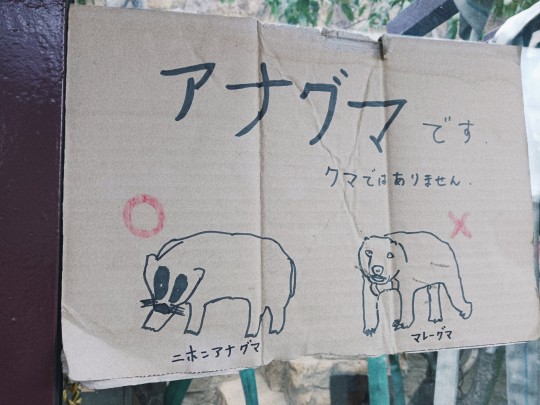 アナグマです.
クマではありません.
○ ×
ニホンアナグマ マレーグマ